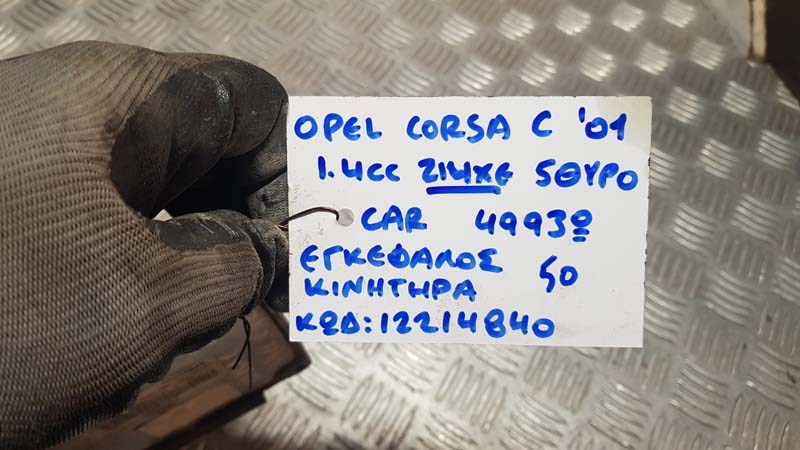 OPEL CORSA C '01
1.4CC Z14XE 5ΘΥΡΟ
CAR 49930
ΕΓΚΕΦΑΛΟΣ 50
ΚΙΝΗΤΗΡΑ
ΚΩΔ:12214840